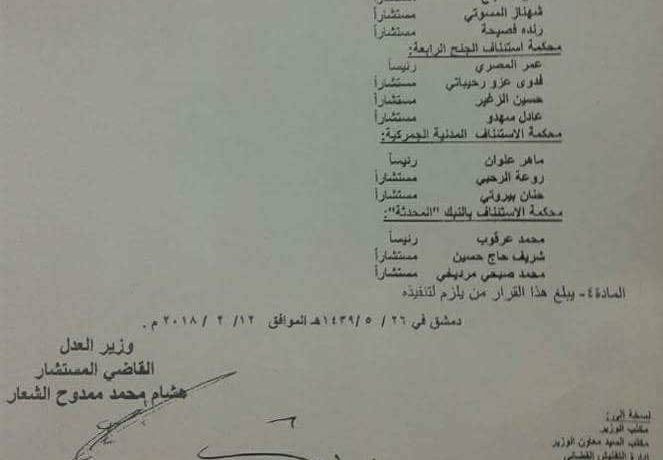 شهناز المسوتي مستشاراً
رنده فصيحة مستشاراً
محكمة استئناف الجنح الرابعة:
عمر المصري رئيساً
فدوى عزو رحيباتي مستشاراً
حسين الزغير مستشاراً
عادل سهدو مستشاراً
محكمة الاستئناف المدنية الجمركية:
ماهر علوان رئيساً
روعة الرحبي مستشاراً
حنان بيروتي مستشاراً
محكمة الاستئناف بالنبك "المحدثة":
محمد عرقوب رئيساً
شريف حاج حسين مستشاراً
محمد صبحي مرديغي مستشاراً
المادة ٤- يبلغ هذا القرار من يلزم لتنفيذه
دمشق في ٢٦ / ٥ /١٤٣٩هـ الموافق ١٢/ ٢ / ٢٠١٨ م.
وزير العدل
القاضي المستشار
هشام محمد ممدوح الشعار
نسخة إلى:
مكتب الوزير
مكتب السيد معاون الوزير
إدارة التفتيش القضائي